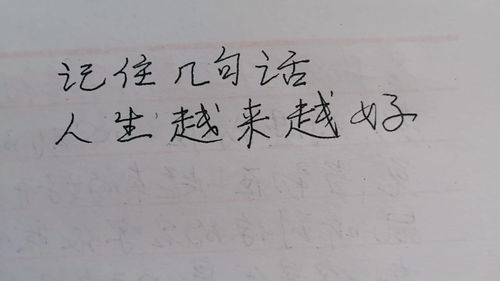 记住几句话
人生越来越好